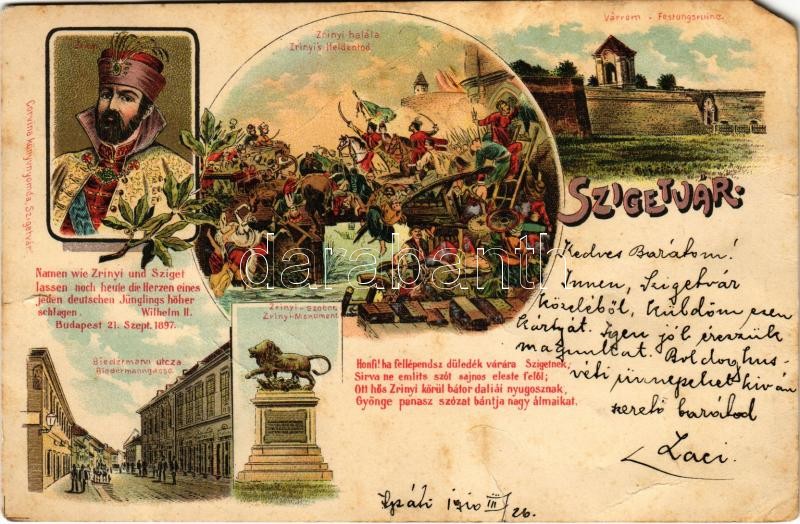 Zrinyi
Zrinyi halála
Zrinyi's Heldentod
Várrom - Festungsruine
Corvina könyvnyomda, Szigetvár
SZIGETVÁR.
Namen wie Zrinyi und Sziget
lassen noch heute die Herzen eines
jeden deutschen Jünglings höher
schlagen. Wilhelm II.
Budapest 21. Szept. 1897.
Biedermann utcza
Biedermanngasse
Zrinyi-szobor
Zrinyi-Monument
Honfi! ha fellépendsz düledék várára Szigetnek,
Sirva ne emlits szót sajnos eleste felől;
Ott hős Zrinyi körül bátor daliái nyugosznak,
Gyönge panasz szózat bántja nagy álmaikat.
Kedves Barátom!
Innen, Szigetvár
közeléből, küldöm ezen
kártyát. Igen jól érezzük
magunkat. Boldog hus-
véti ünnepeket kiván
szerető barátod
Laci.
1910 III/26.
darabanth